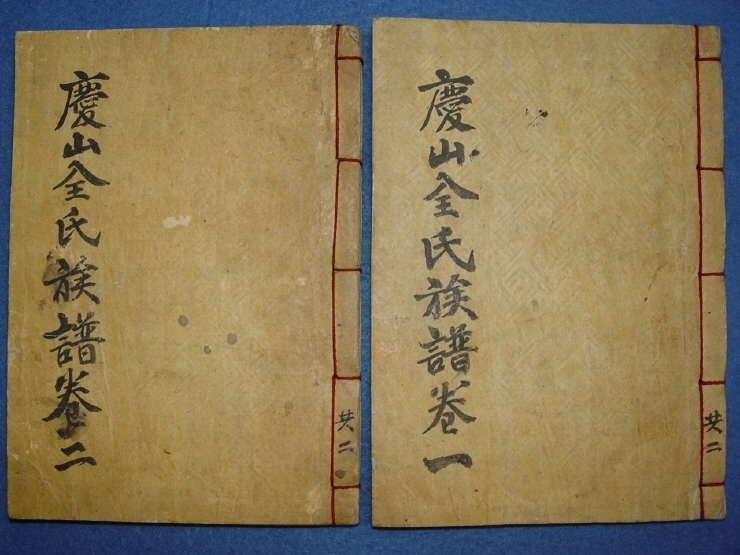 慶山全氏族譜卷一
共二
慶山全氏族譜卷二
共二